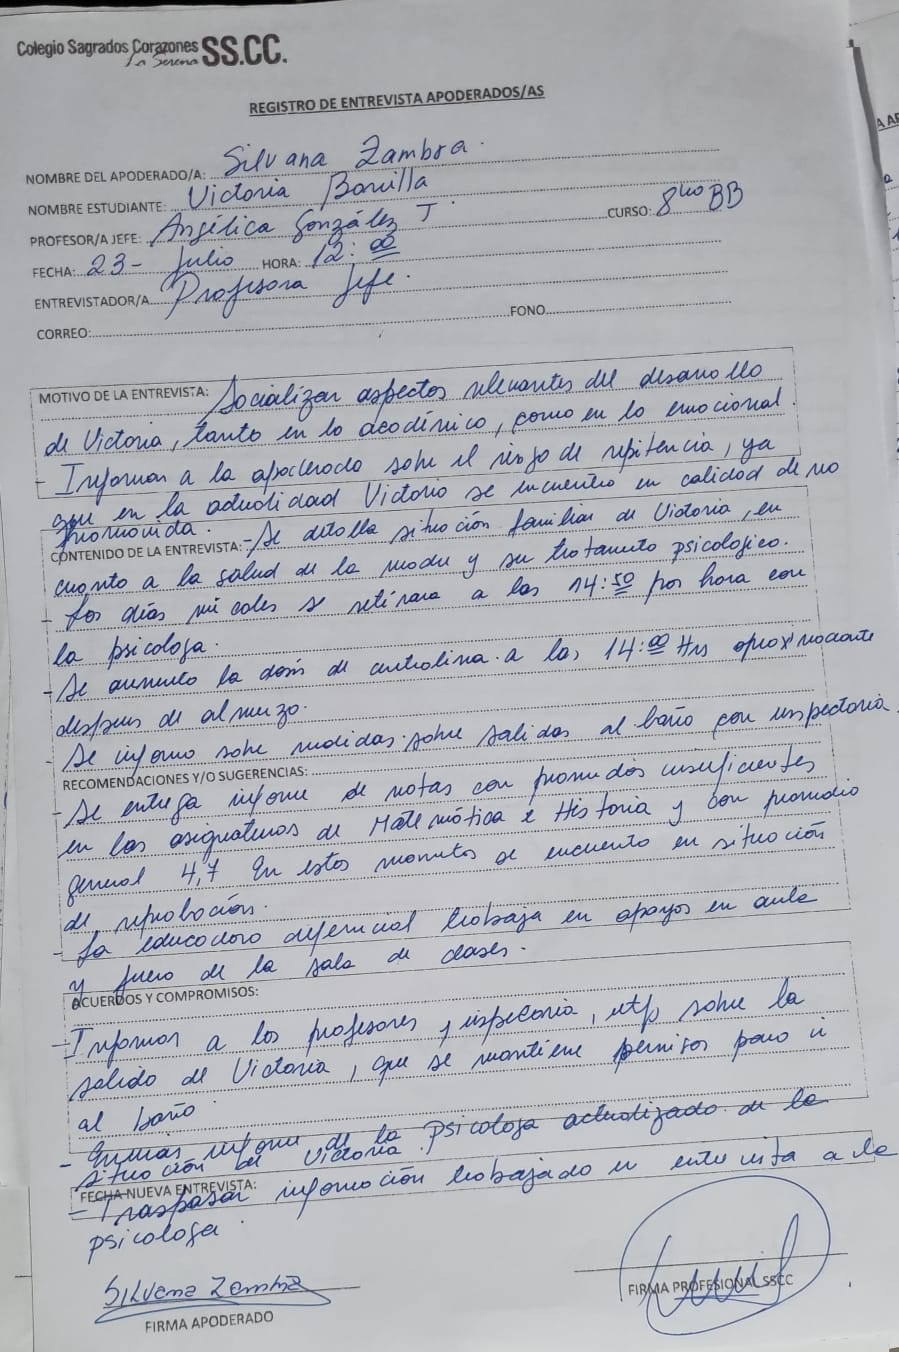 Colegio Sagrados Corazones SS.CC.
La Serena
REGISTRO DE ENTREVISTA APODERADOS/AS
NOMBRE DEL APODERADO/A: Silvana Zambra.
NOMBRE ESTUDIANTE: Victoria Bonilla
PROFESOR/A JEFE: Angélica González T. CURSO: 8vo BB
FECHA: 23- Julio HORA: 12:00
ENTREVISTADOR/A Profesora Jefe.
CORREO: FONO
MOTIVO DE LA ENTREVISTA: Socializar aspectos relevantes del desarrollo
de Victoria, tanto en lo académico, como en lo emocional.
- Informar a la apoderada sobre el riesgo de repitencia, ya
que en la actualidad Victoria se encuentra en calidad de no
promovida.
CONTENIDO DE LA ENTREVISTA: - Se detalla situación familiar de Victoria, en
cuanto a la salud de la madre y su tratamiento psicologico.
- Los días miercoles se retirara a las 14:50 por hora con
la psicologa.
- Se aumento la dosis de a las 14:00 Hrs aproximadamente
despues de almuerzo.
- Se informo sobre medidas sobre salidas al baño con inspectoria.
RECOMENDACIONES Y/O SUGERENCIAS:
- Se entrega informe de notas con promedios insuficientes
en las asignaturas de Matemática e Historia y con promedio
general 4,7 En estos momentos se encuentra en situación
de reprobación.
- La educadora diferencial trabaja en apoyos en aula
y fuera de la sala de clases.
ACUERDOS Y COMPROMISOS:
- Informar a los profesores y inspectoria, utp sobre la
salida de Victoria, que se mantiene permisos para ir
al baño
- Enviar informe de la Psicologa actualizado de la
situación de Victoria.
FECHA NUEVA ENTREVISTA:
- Traspasar información trabajada en entrevista a la
psicologa.
Silvana Zambra
FIRMA APODERADO
FIRMA PROFESIONAL SSCC